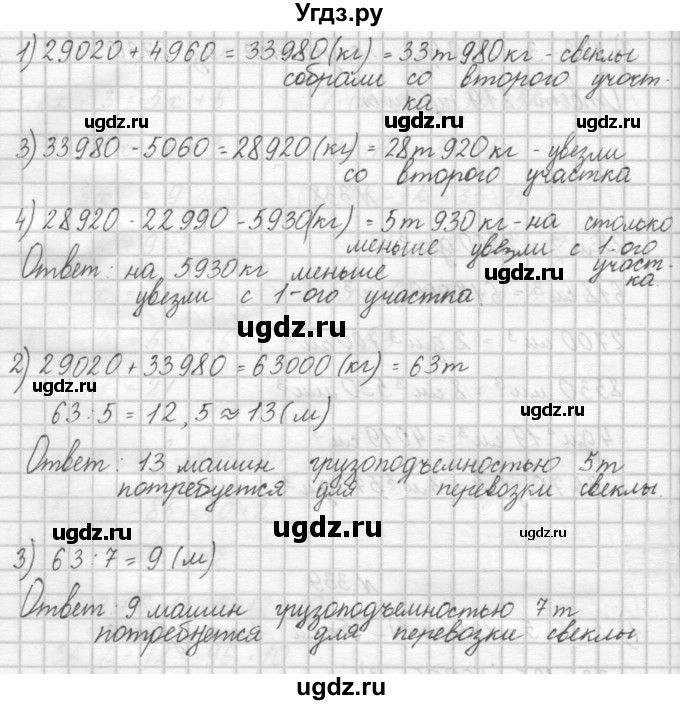 Угдз.ру
1) 29020 + 4960 = 33980 (кг) = 33т 980кг - свеклы
собрали со второго участ-
ка
ugdz.ru ugdz.ru ugdz.ru
3) 33980 - 5060 = 28920 (кг) = 28т 920кг - увезли
со второго участка
4) 28920 - 22990 - 5930 (кг) = 5т 930кг - на столько
меньше увезли с 1-ого
участ-
ка.
Ответ: на 5930кг меньше
увезли с 1-ого участка
ugdz.ru
ugdz.ru
2) 29020 + 33980 = 63000 (кг) = 63т
ugdz.ru
63 : 5 = 12,5 ≈ 13 (м)
ugdz.ru
Ответ: 13 машин грузоподъемностью 5т
потребуется для перевозки свеклы.
ugdz.ru ugdz.ru ugdz.ru
3) 63 : 7 = 9 (м)
Ответ: 9 машин грузоподъемностью 7т
потребуется для перевозки свеклы.
ugdz.ru